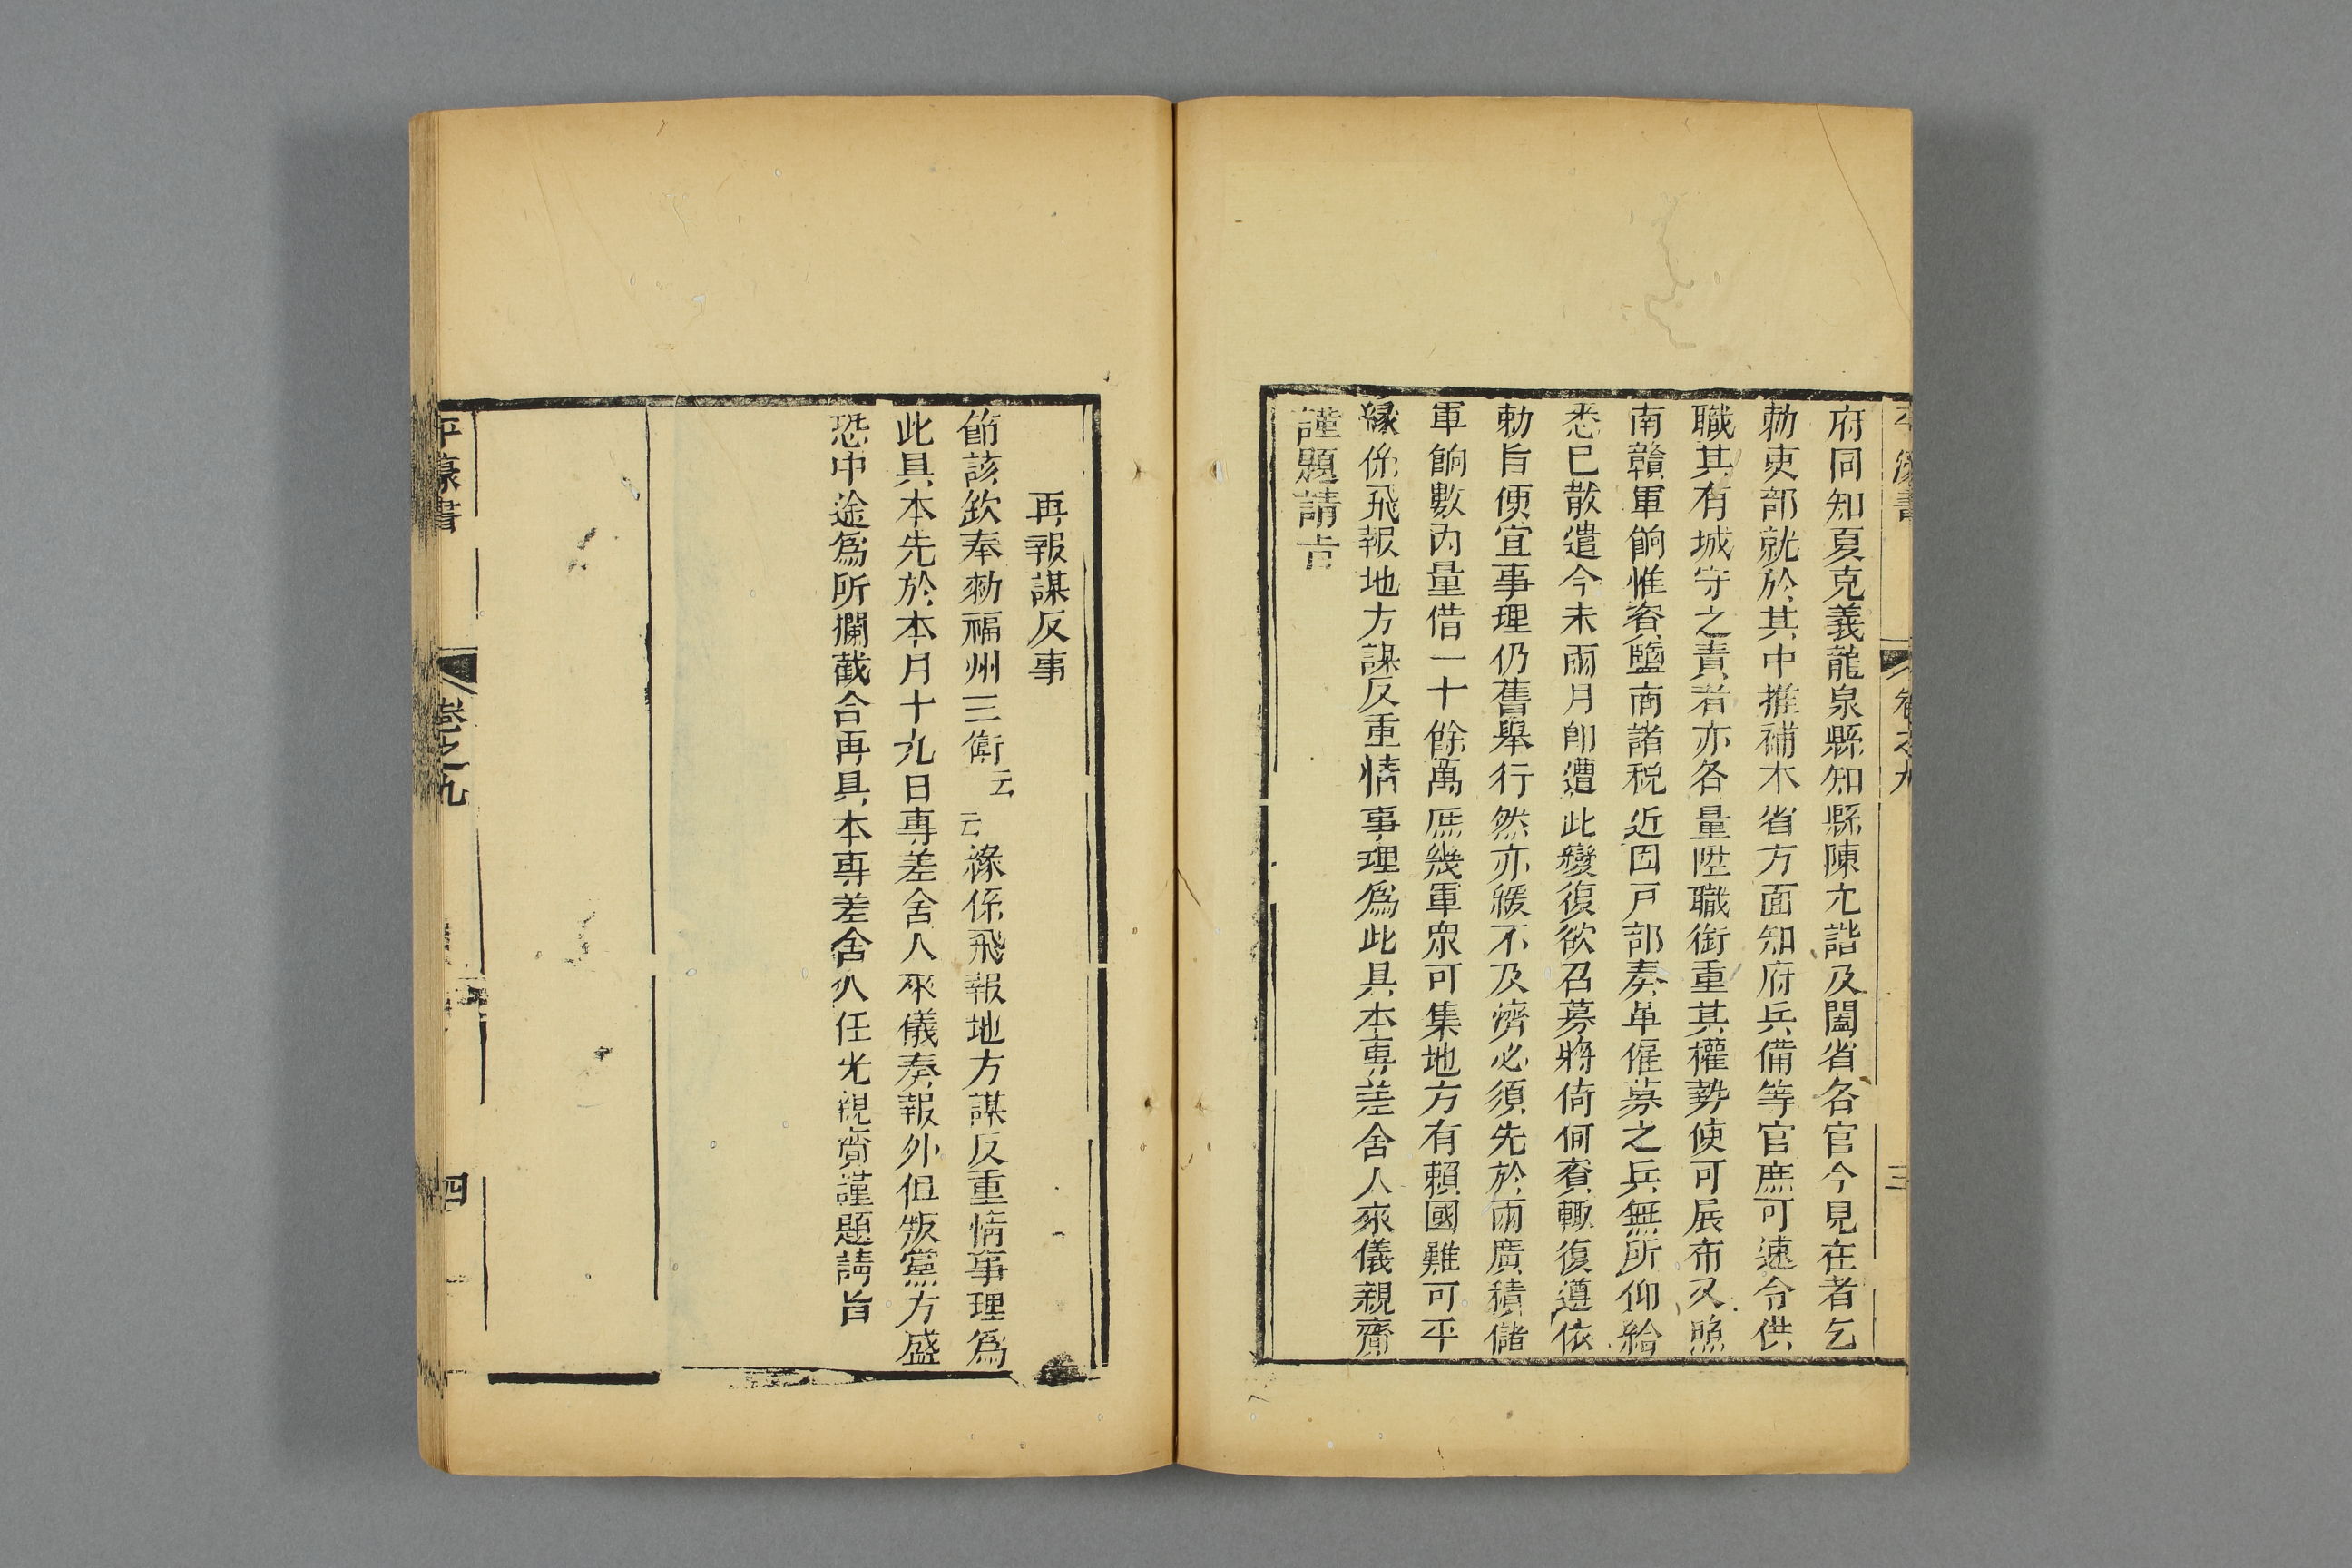 平濠書
卷之九
三
府同知夏克義龍泉縣知縣陳允諧及闔省各官今見在者乞
勅吏部就於其中推補本省方面知府兵備等官庶可速令供
職其有城守之責者亦各量陞職銜重其權勢使可展布又照
南贛軍餉惟資鹽商諸税近因戸部奏革僱募之兵無所仰給
悉已散遣今未兩月即遭此變復欲召募將倚何資輙復遵依
勅旨便宜事理仍舊舉行然亦緩不及濟必須先於兩廣積儲
軍餉數内量借一十餘萬庶幾軍衆可集地方有賴國難可平
縁係飛報地方謀反重情事理爲此具本專差舍人來儀親齎
謹題請旨
再報謀反事
節該欽奉勅福州三衛云云緣係飛報地方謀反重情事理爲
此具本先於本月十九日專差舍人來儀奏報外但叛黨方盛
恐中途爲所攔截合再具本專差舍人任光親齎謹題請旨
平濠書
卷之九
四